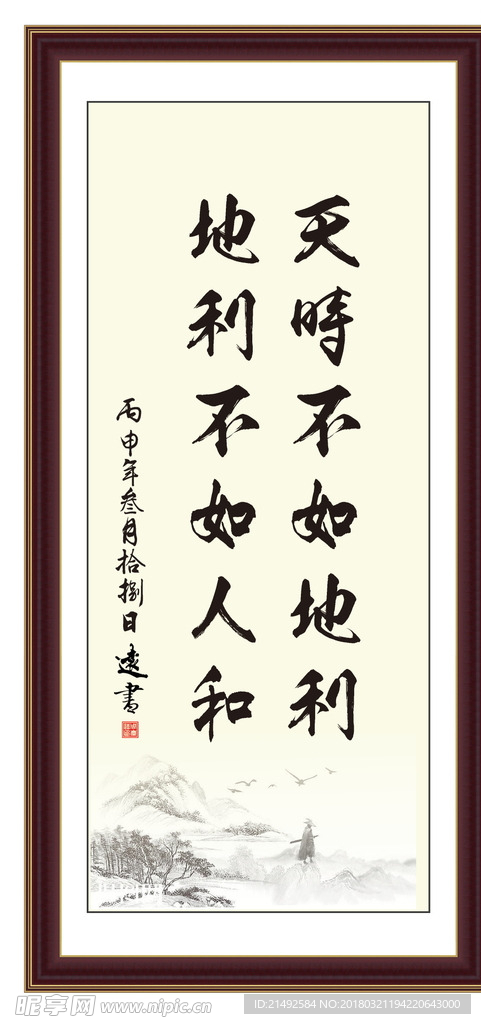 天時不如地利
地利不如人和
丙申年叁月拾捌日遠書
昵享网 www.nipic.cn
ID:21492584 NO:20180321194220643000